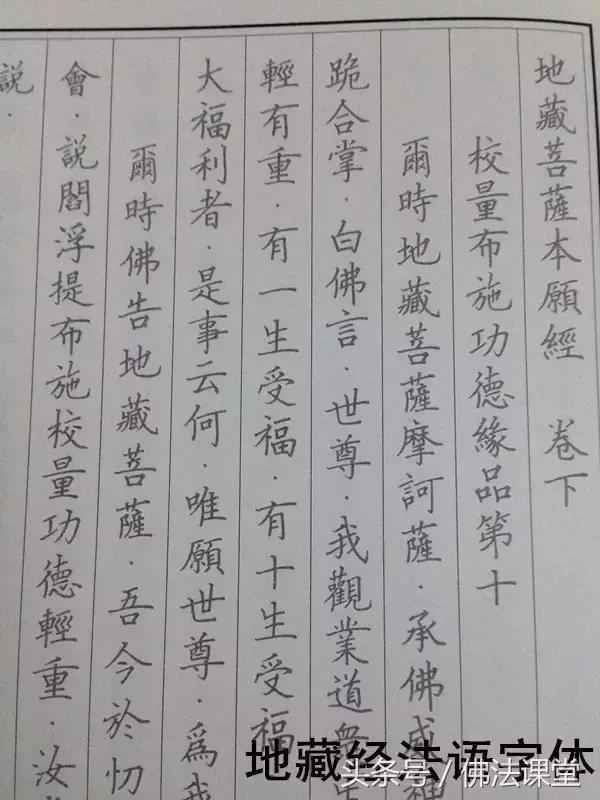 地藏菩薩本願經　卷下
校量布施功德緣品第十
爾時地藏菩薩摩訶薩．承佛威神
跪合掌．白佛言．世尊．我觀業道眾生
輕有重．有一生受福．有十生受福
大福利者．是事云何．唯願世尊．為我
爾時佛告地藏菩薩．吾今於忉
會．說閻浮提布施校量功德輕重．汝
說．
地藏经法语字体
头条号／佛法课堂